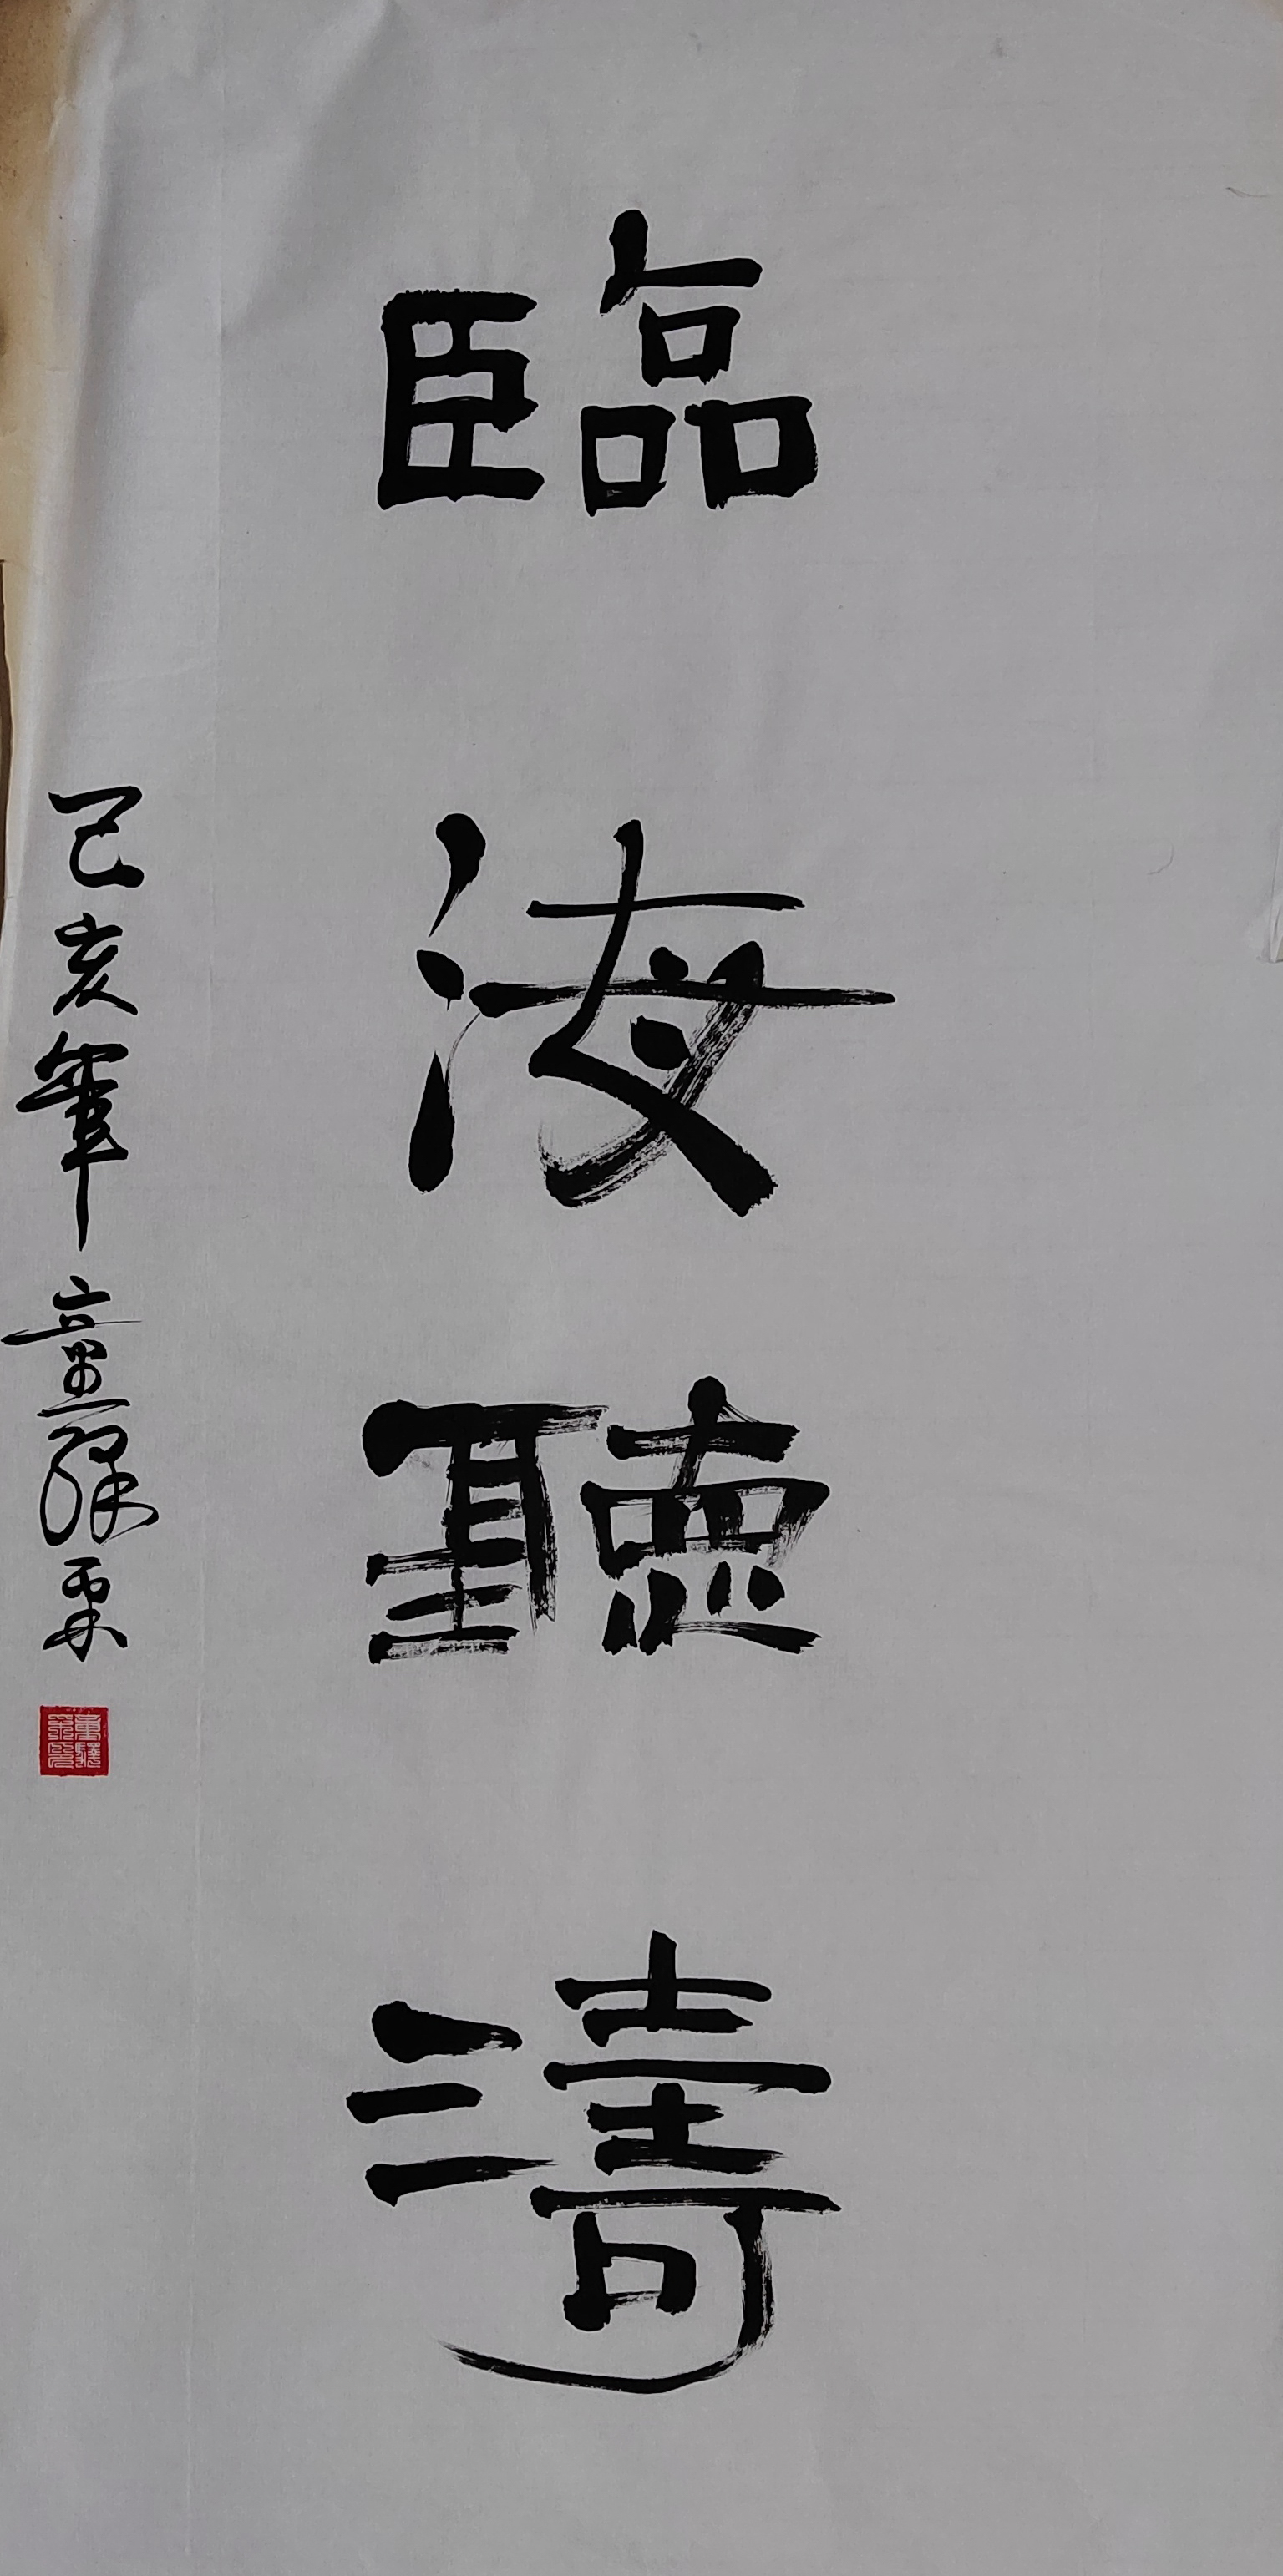 臨海聽濤
己亥年 童繹票